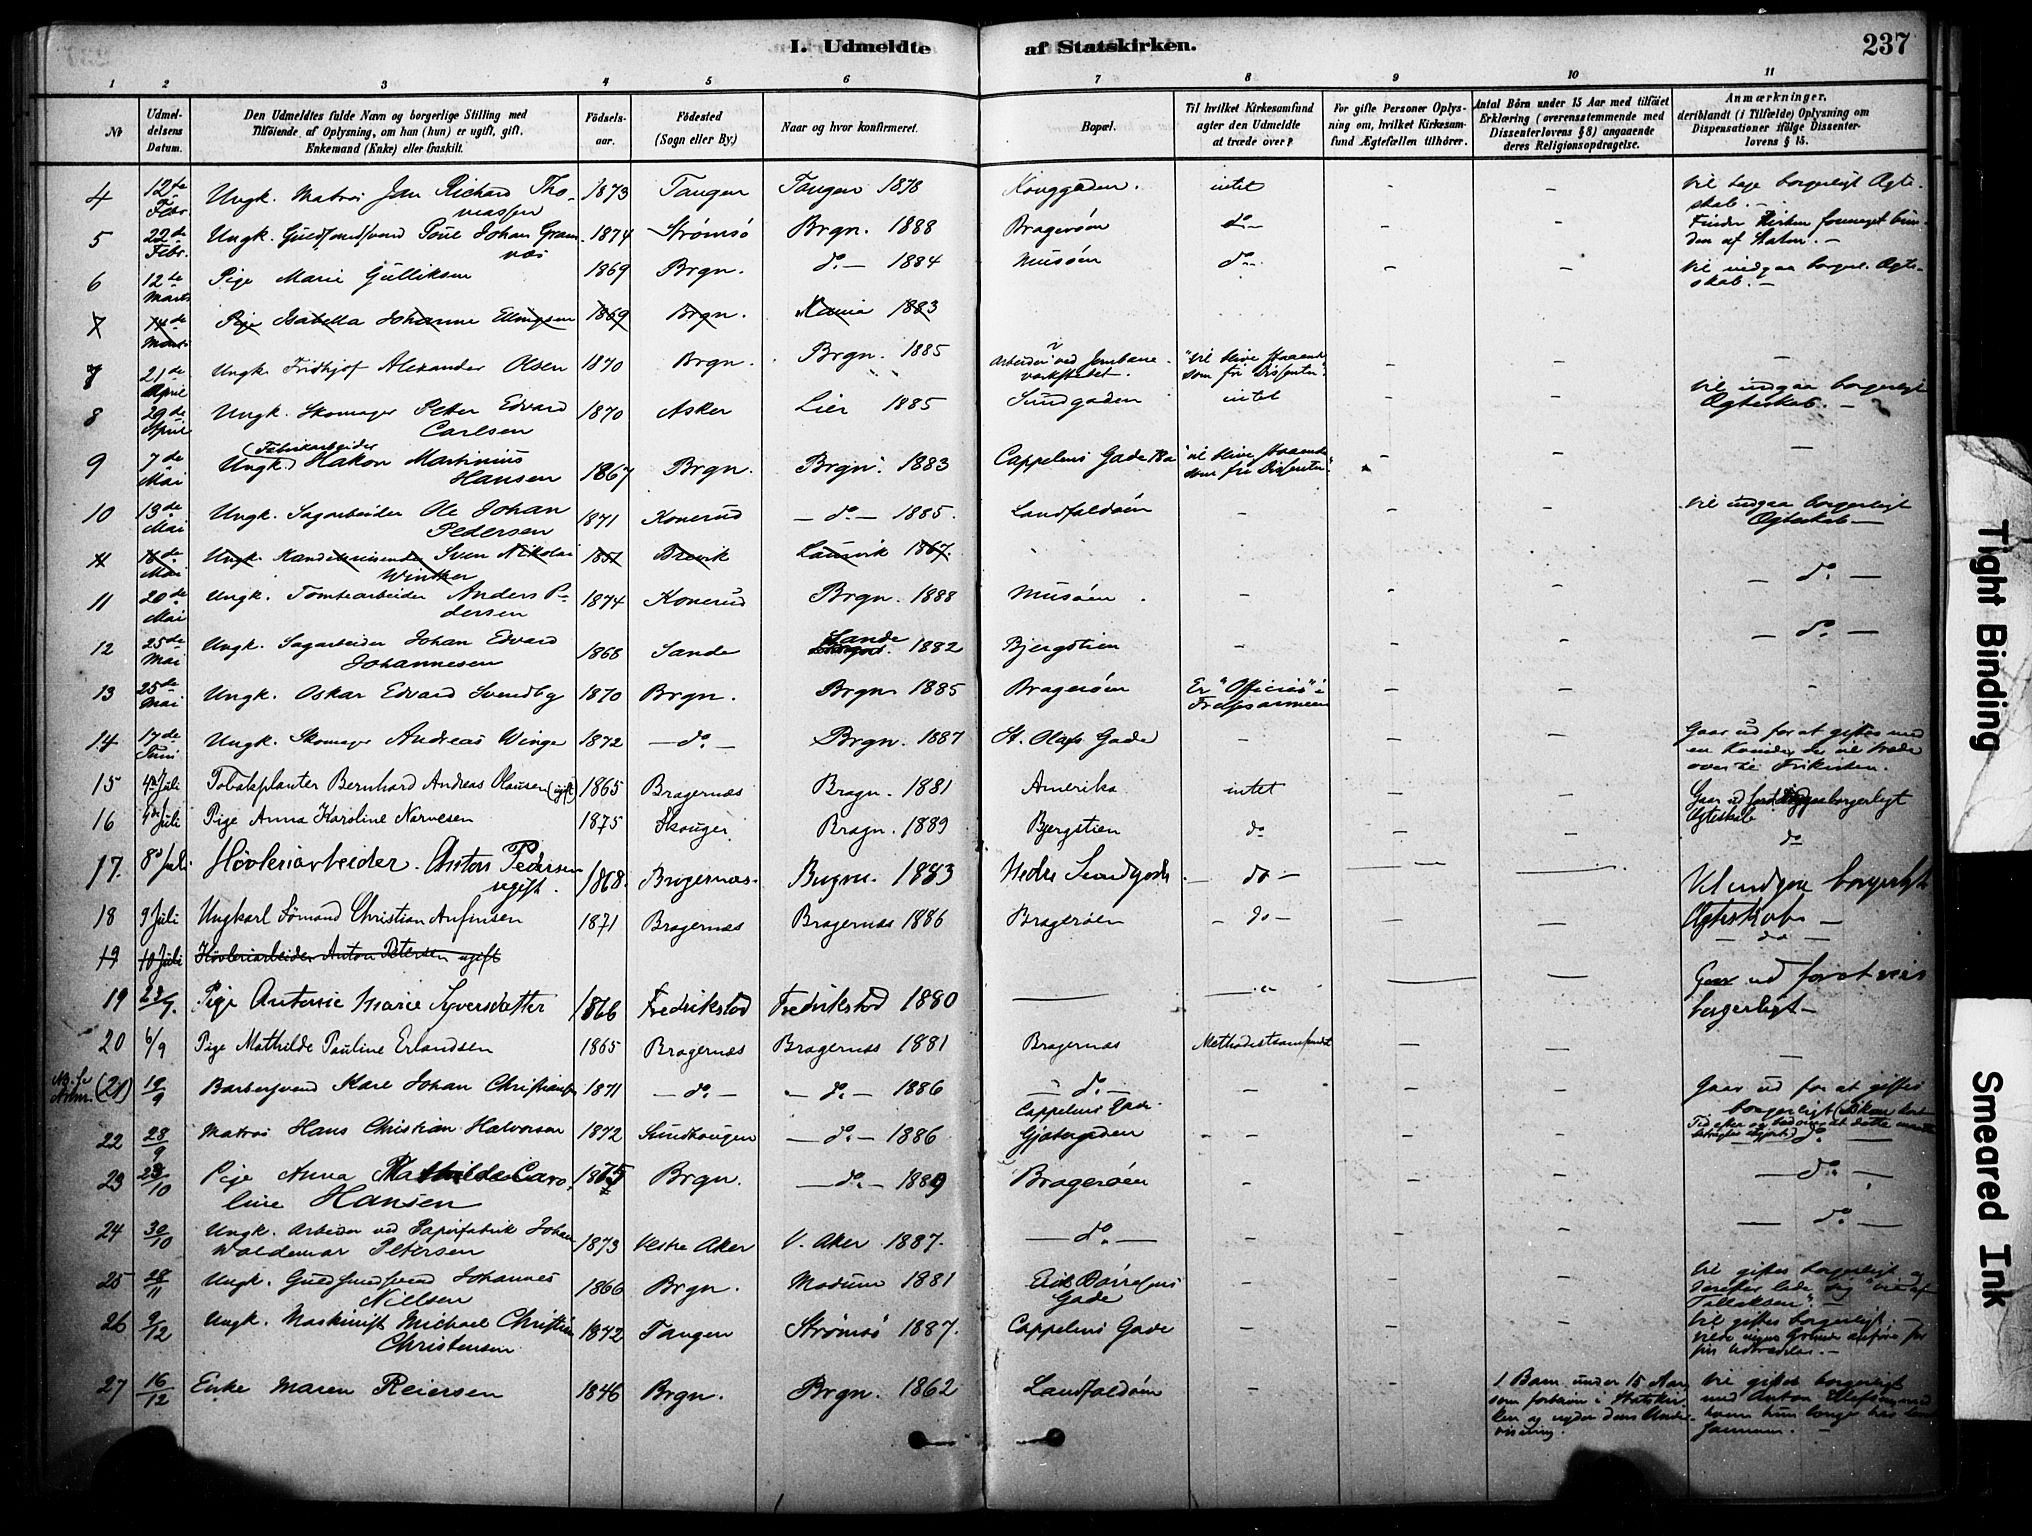 I. Udmeldte af Statskirken.
237
1 2 3 4 5 6 7 8 9 10 11
№
Udmeldelsens Datum.
Den Udmeldtes fulde Navn og borgerlige Stilling med
Tilføiende af Oplysning, om han (hun) er ugift, gift,
Enkemand (Enke) eller fraskilt.
Fødsels-
aar.
Fødested
(Sogn eller By.)
Naar og hvor konfirmeret.
Bopæl.
Til hvilket Kirkesamfund
agter den Udmeldte
at træde over?
For gifte Personer Oplys-
ning om, hvilket Kirkesam-
fund Ægtefællen tilhører.
Antal Børn under 15 Aar med tilføiet
Erklæring (overensstemmende med
Dissenterlovens § 8) angaaende
deres Religionsopdragelse.
Anmærkninger,
deriblandt (i Tilfælde) Oplysning om
Dispensationer ifølge Dissenter-
lovens § 15.
4 12te Febr Ungk. Matros Jan Richard Tho-
massen 1873 Tangen Tangen 1878 Konggaden. intet - - Vil leve borgerligt Ægte-
skab. -
5 22de Febr. Ungk. Guldsmedsvend Poul Johan Gram-
næs 1874 Strømsø Brgn. 1888 Bragerøen do - - Finder Kirken formeget bun-
den af Staten. -
6 12te Marts Pige Marie Gulliksen 1869 Brgn. do - 1884 Musøen do - - Vil indgaa borgerl. Ægte-
skab. -
7 14de Marts Pige Isabella Johanne Ellingsen 1869 Brgn. 1883
7 21de April Ungk. Fridhjof Alexander Olsen 1870 Brgn. Brgn. 1885 Arbeider ved Jernbane-
værkstedet. "vil blive staaende
som fri Dissenter". - - -
8 29de April Ungk. Skomager Petter Edvard
Carlsen 1870 Asker Lier 1885 Sundgaden intet - - Vil indgaa borgerligt
Ægteskab. -
9 7de Mai Ungk. (Fabrikarbeider) Hakon Martinius
Hansen 1867 Brgn. Brgn. 1883 Cappelens Gade 18a "vil blive staaende
som fri Dissenter". - - -
10 13de Mai Ungk. Sagarbeider Ole Johan
Pedersen 1871 Konerud - do - 1885. Landfaldøen - - - Vil indgaa borgerligt
Ægteskab -
11 18de Mai Ungk. Handelsreisende Sven Nikolai
Winther 1851 Brevik Laurvik 1867.
11 20de Mai Ungk. Tomtearbeider Anders Pe-
dersen 1874 Konerud Brgn. 1888 Musøen - - - - do. -
12 25de Mai Ungk. Sagarbeider Johan Edvard
Johannesen 1868 Sande Sande 1882 Bjergstien - - - - do. -
13 25de Mai Ungk. Oskar Edvard Svendby 1870 Brgn. Brgn 1885 Bragerøen Er "Officier" i
Frelsesarmeen - - -
14 17de Juni Ungk. Skomager Andreas Winge 1872 - do. - Brgn. 1887 St. Olafs Gade - - - Gaar ud for at giftes med
en Kvinde, der vil træde
over til Frikirken.
15 4de Juli Tobaksplanter Bernhard Andreas Clausen (ugift) 1865 Bragernæs Bragn. 1881 Amerika intet - - Gaar ud for borgerligt
Ægteskab
16 4de Juli Pige Anna Karoline Narvesen 1875 Skouger Bragn. 1889 Bjergstien do - - do
17. 8d Juli Høvleriarbeider Anton Pedersen
ugift. 1868. Bragernæs. Bragn. 1883 Nedre Sundgade - do - - - Vil indgaa borgerligt
Ægteskab -
18 9 Juli Ungkarl Sømand Christian Anfinsen 1871 Bragernæs Bragernæs 1886 Bragerøen - do - - - - do -
19 10 Juli Høvleriarbeider Anton Petersen ugift
19 23/7. Pige Antonie Marie Syversdatter 1866 Fredrikstad Fredrikstad 1880 - - - - Gaar ud for at vies
borgerligt -
20 6/9 Pige Mathilde Pauline Erlandsen 1865 Bragernæs Bragernæs 1881 Bragernæs Methodistsamfundet - - -
(21) 19/9 Barbersvend Karl Johan Christiansen 1871 - do. - - do. - 1886 - do. - - - - Gaar ud for at giftes
borgerligt
22 28/9 Matros Hans Christian Halvorsen 1872 Sundhaugen - do. - 1886 Cappelens Gade.
Gjætergaden - - - do. -
23 23/10 Pige Anna Mathilde Caro-
line Hansen 1875 Brgn. - do. - 1889 Bragerøen - do. -
24 30/10 Ungk. Arbeider ved Papirfabrik Johan
Waldemar Petersen 1873 Vestre Aker V. Aker 1887. - do. - - - - - do. -
25 28/11 Ungk. Guldsmedsvend Johannes
Nielsen 1866 Brgn. Modum 1881 Erik Børresens
Gade - - - Vil giftes borgerligt og
derefter lade sig "vie af
Tollefsen". -
26 9/12 Ungk. Maskinist Michael Christian
Christensen 1872 Tangen Strømsø 1887. Cappelens Gade - - - Vil giftes borgerligt; -
vilde ingen Grunde anføre for
sin Udtrædelse. -
27 16/12 Enke Maren Reiersen 1846 Brgn. Brgn. 1862 Landfaldøen - - 1 Barn under 15 Aar,
som forbliver i Statskir-
ken og nyder dens Under-
visning. Vil giftes borgerligt
med Anton Ellefsen, med
hvem hun længe har levet
sammen. -
Tight Binding
Smeared Ink